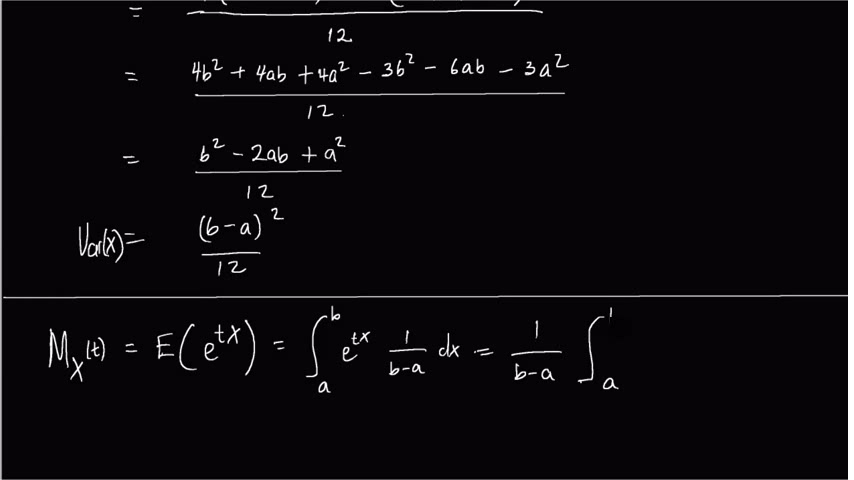 = 12
= 4b² + 4ab + 4a² - 3b² - 6ab - 3a² / 12
= b² - 2ab + a² / 12
Var(X) = (b-a)² / 12
M_X(t) = E(e^{tX}) = ∫_a^b e^{tx} 1/(b-a) dx = 1/(b-a) ∫_a